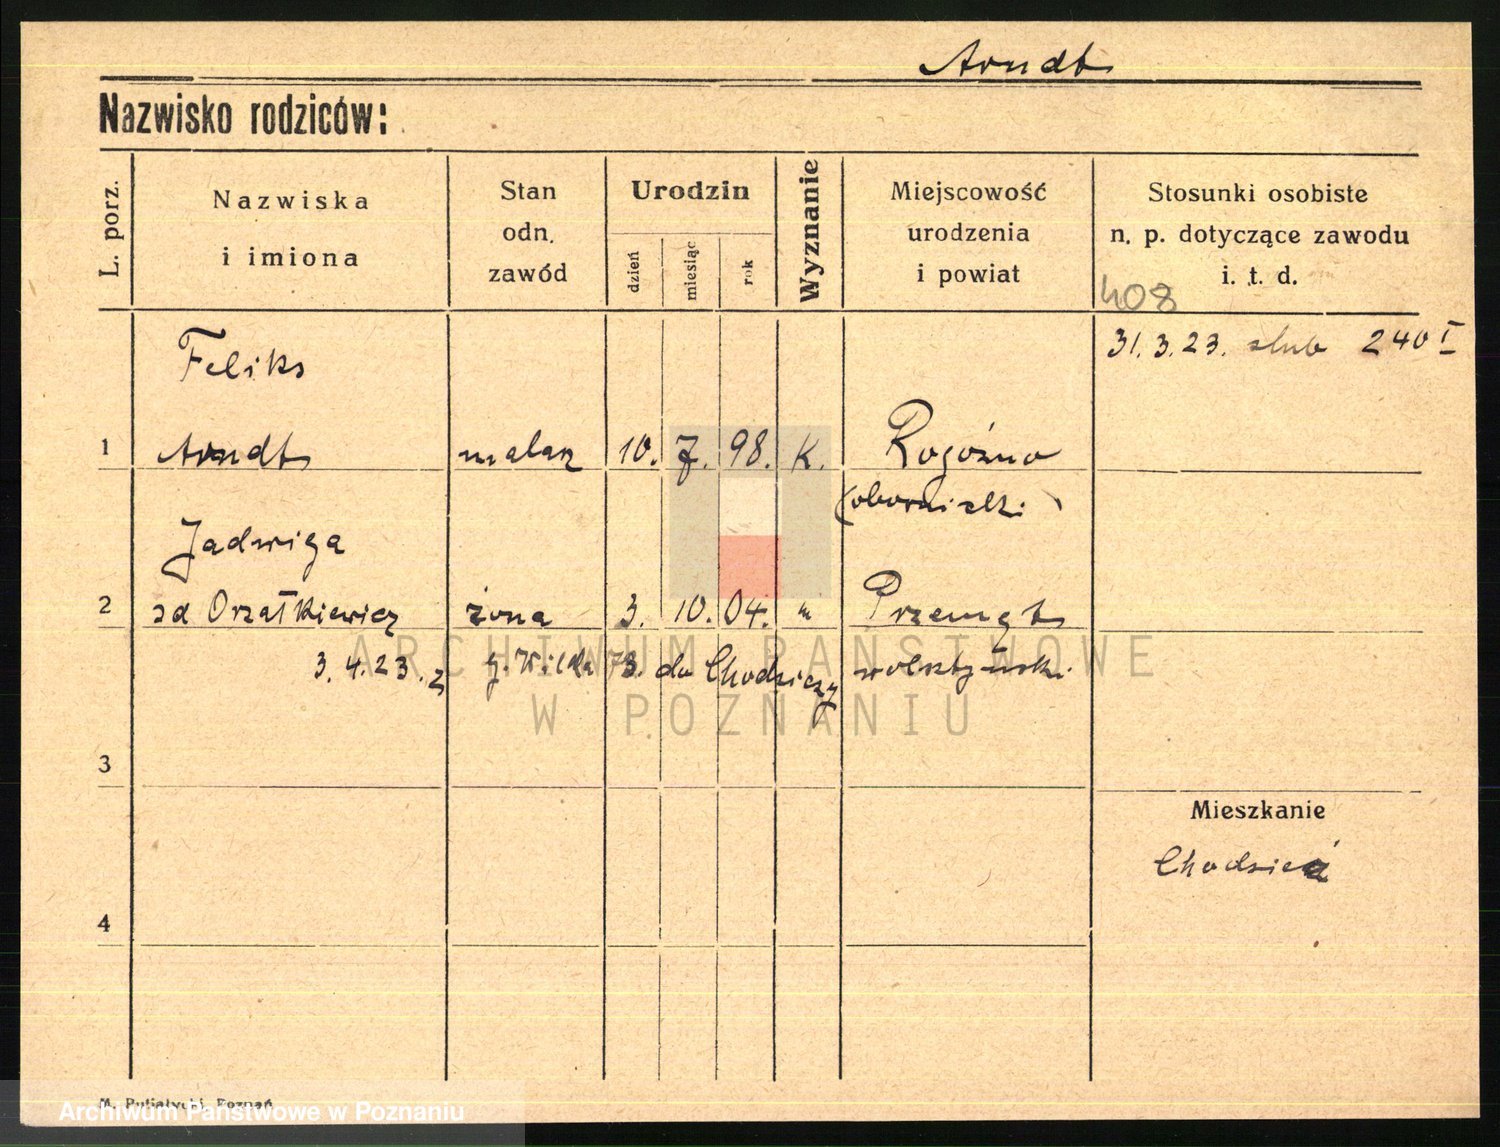 Arndt
Nazwisko rodziców:
L. porz.
Nazwiska
i imiona
Stan
odn.
zawód
Urodzin
dzień
miesiąc
rok
Wyznanie
Miejscowość
urodzenia
i powiat
Stosunki osobiste
n. p. dotyczące zawodu
i. t. d.
408
31.3.23. ślub 240 I
Feliks
1 Arndt malarz 10. 7. 98. K. Rogoźno
(obornicki)
Jadwiga
2 zd Orzałkiewicz żona 3. 10. 04. " Przemęt
3.4.23. z g. Wilda 73. do Chodzieży wolsztyński.
3
Mieszkanie
Chodzież
4
M. Putiatycki, Poznań
ARCHIWUM PAŃSTWOWE
W POZNANIU
Archiwum Państwowe w Poznaniu